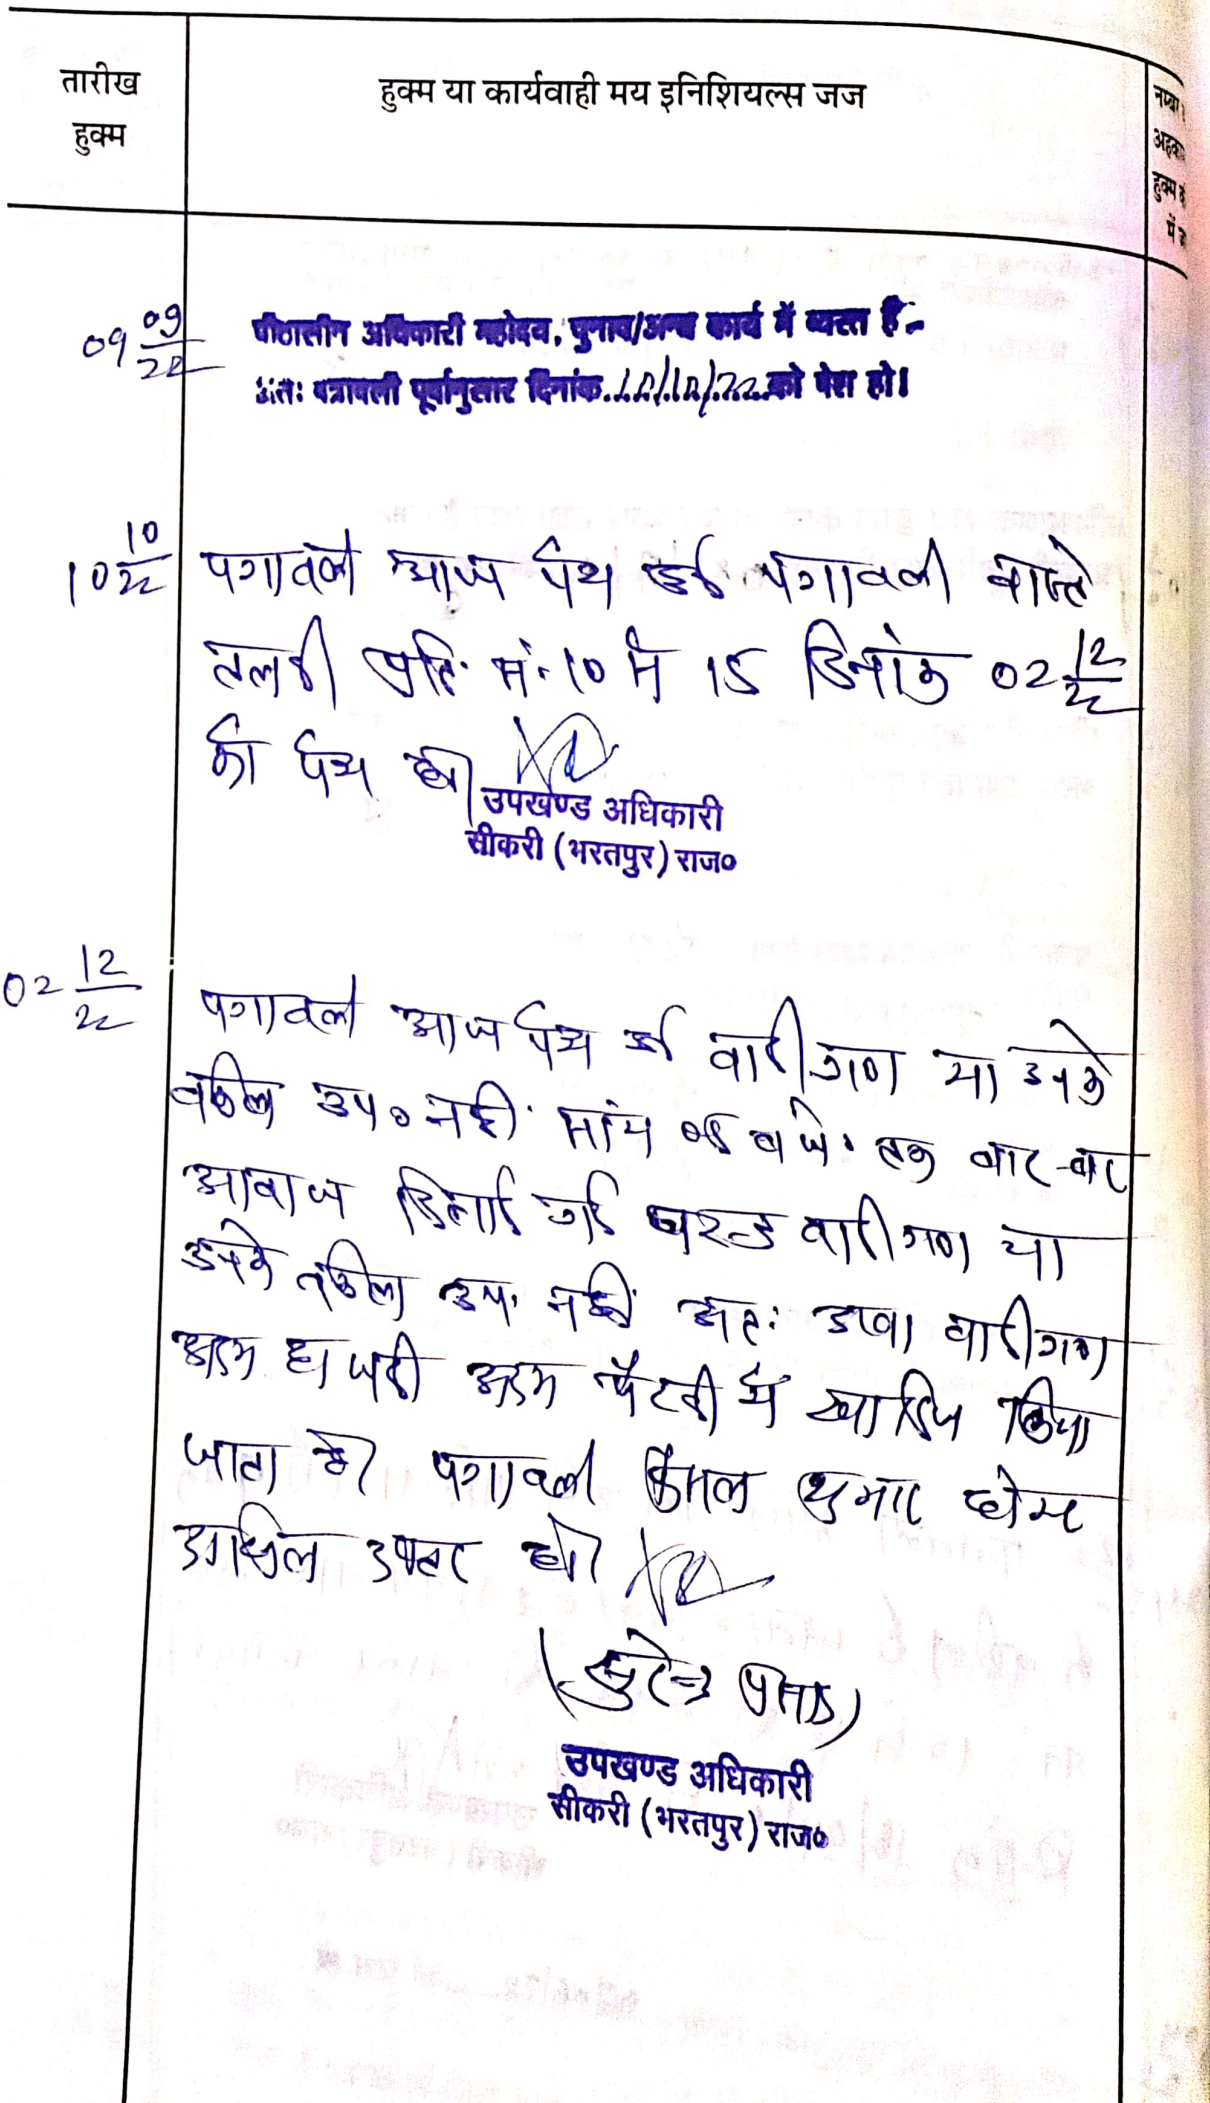 तारीख
हुक्म
हुक्म या कार्यवाही मय इनिशियल्स जज
हुक्म
09 09/22
पीठासीन अधिकारी महोदय, चुनाव/अन्य कार्य में व्यस्त हैं।
अतः पत्रावली पूर्वानुसार दिनांक 10/10/22 को पेश हो।
10 10/22
पत्रावली आज पेश हुई पत्रावली वास्ते
तलबी प्रति. सं. 10 से 15 दिनांक 02 12/22
को पेश हो।
उपखण्ड अधिकारी
सीकरी (भरतपुर) राज०
02 12/22
पत्रावली आज पेश हुई वादीगण या उनके
वकील उप० नहीं सांय बजे तक बार-बार
आवाज दिलाई गई परन्तु वादीगण या
उनके वकील उप. नहीं अतः दावा वादीगण
अदम हाजरी अदम पैरवी में खारिज किया
जाता है। पत्रावली फैसल शुमार होकर
दाखिल दफ्तर हो।
(सुरेन्द्र प्रसाद)
उपखण्ड अधिकारी
सीकरी (भरतपुर) राज०